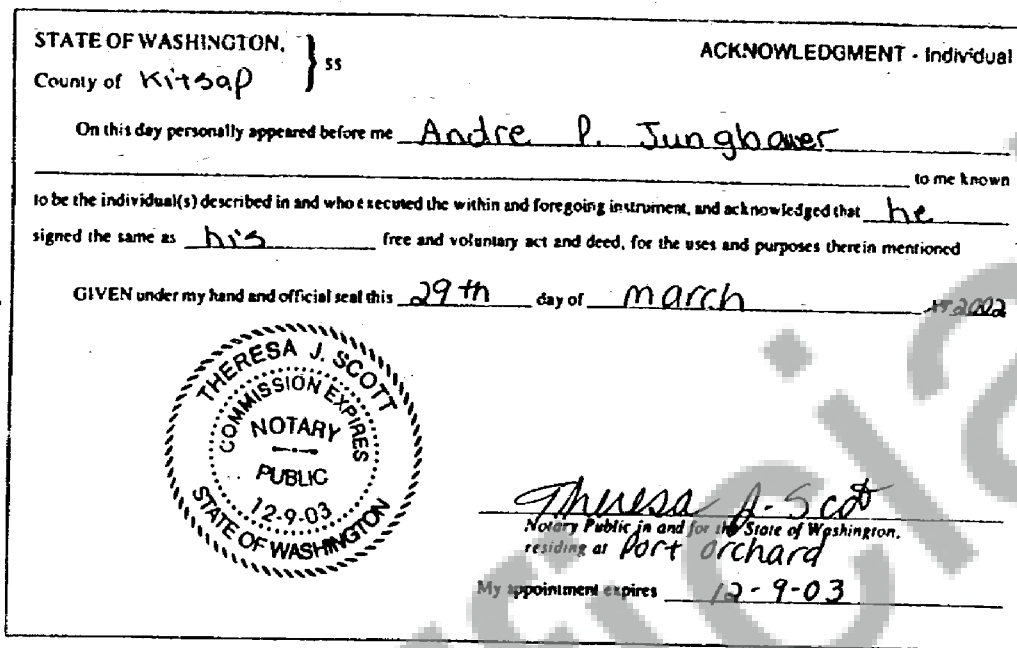 STATE OF WASHINGTON,
County of Kitsap
} ss
ACKNOWLEDGMENT - Individual
On this day personally appeared before me Andre P. Jungbauer
to me known
to be the individual(s) described in and who executed the within and foregoing instrument, and acknowledged that he
signed the same as his free and voluntary act and deed, for the uses and purposes therein mentioned
GIVEN under my hand and official seal this 29th day of march 2002
THERESA J. SCOTT
COMMISSION EXPIRES
NOTARY
PUBLIC
12-9-03
STATE OF WASHINGTON
Theresa J. Scott
Notary Public in and for the State of Washington,
residing at Port Orchard
My appointment expires 12-9-03